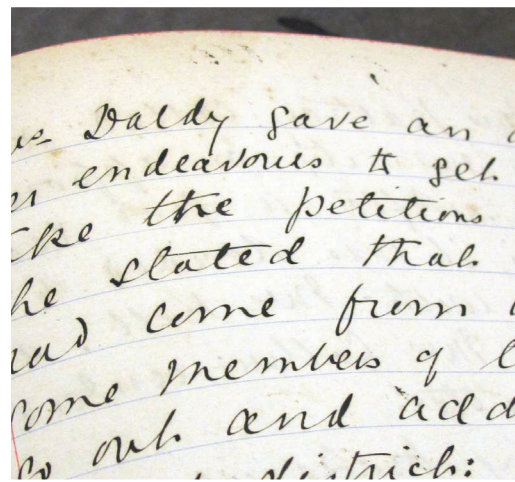 Daldy gave an
endeavours to get
the petitions
he stated that
had come from
some members of
out and add
district: